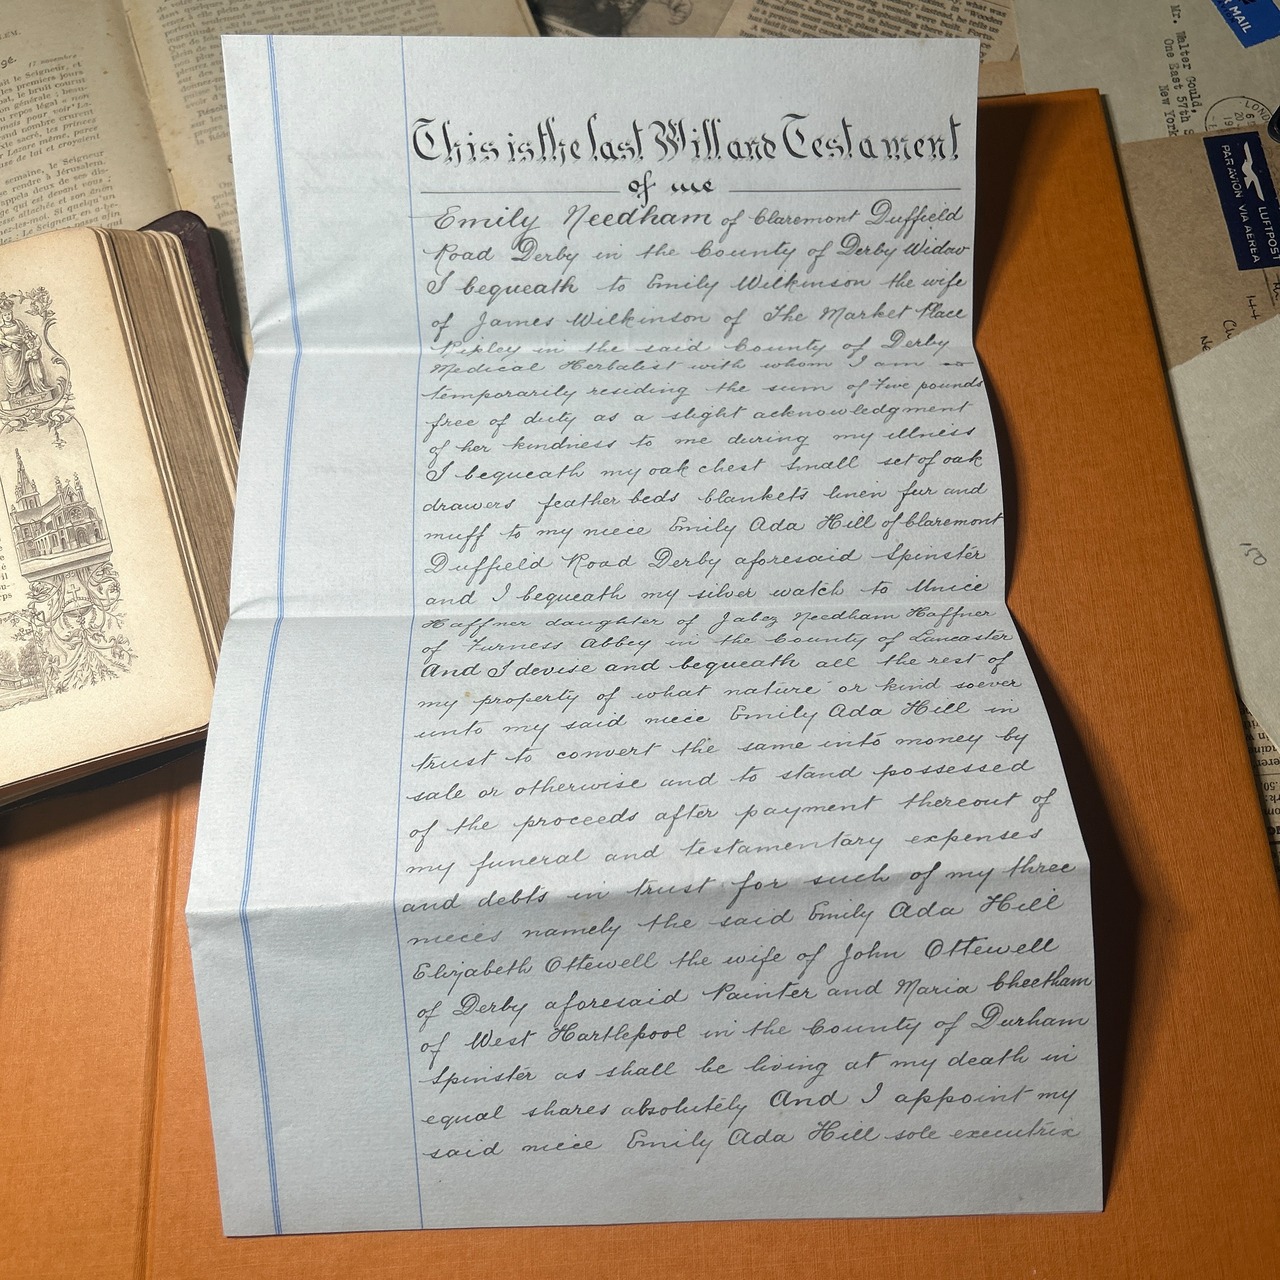 This is the last Will and Testament
of me
Emily Needham of Claremont Duffield
Road Derby in the County of Derby Widow
I bequeath to Emily Wilkinson the wife
of James Wilkinson of The Market Place
Ripley in the said County of Derby
Medical Herbalist with whom I am
temporarily residing the sum of Five pounds
free of duty as a slight acknowledgment
of her kindness to me during my illness
I bequeath my oak chest small set of oak
drawers feather beds blankets linen fur and
muff to my niece Emily Ada Hill of Claremont
Duffield Road Derby aforesaid Spinster
and I bequeath my silver watch to Unice
Haffner daughter of Jabez Needham Haffner
of Furness Abbey in the County of Lancaster
And I devise and bequeath all the rest of
my property of what nature or kind soever
unto my said niece Emily Ada Hill in
trust to convert the same into money by
sale or otherwise and to stand possessed
of the proceeds after payment thereout of
my funeral and testamentary expenses
and debts in trust for such of my three
nieces namely the said Emily Ada Hill
Elizabeth Ottewell the wife of John Ottewell
of Derby aforesaid Painter and Maria Cheetham
of West Hartlepool in the County of Durham
Spinster as shall be living at my death in
equal shares absolutely And I appoint my
said niece Emily Ada Hill sole executrix
Mr. Walter Gould,
One East 57th
New York
PAR AVION VIA AEREA
LUFTPOST
MAIL
150